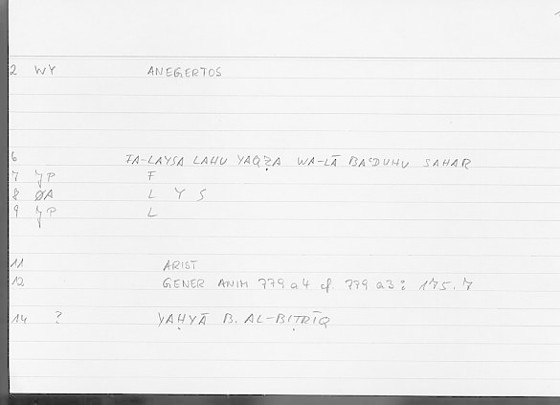 2 WY ANEGERTOS
6 FA-LAYSA LAHU YAQẒA WA-LĀ BAʿDUHU SAHAR
7 JP F
8 ØA L Y S
9 JP L
11 ARIST
12 GENER ANIM 779a4 cf. 779a3: 175.7
14 ? YAḤYĀ B. AL-BIṬRĪQ